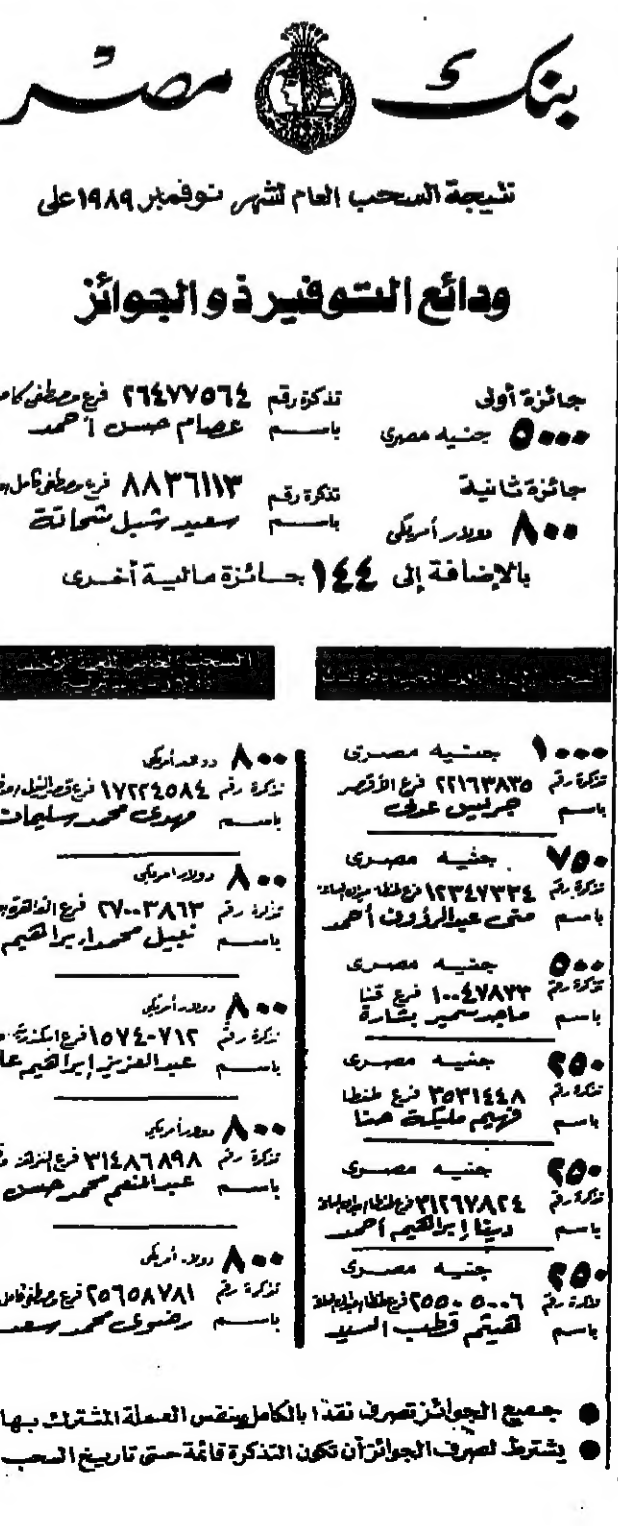 بنك مصر
نتيجة السحب العام لشهر نوفمبر ١٩٨٩ على
ودائع التوفير ذو الجوائز
جائزة أولى تذكرة رقم ٢٦٤٧٧٥٦٤ فرع مصطفى كامل
٥٠٠٠ جنيه مصرى باسم عصام حسن أحمد
جائزة ثانية تذكرة رقم ٨٨٣٦١١٣ فرع مصطفى كامل
٨٠٠ دولار أمريكى باسم سعيد شبل شحاتة
بالإضافة إلى ١٤٤ جائزة مالية أخرى
١٠٠٠ جنيه مصرى
تذكرة رقم ٢٢١٦٣٨٣٥ فرع الأقصر
باسم جرجس عونى
٧٥٠ جنيه مصرى
تذكرة رقم ١٢٣٤٧٣٣٤ فرع طنطا
باسم منى عبدالرؤوف أحمد
٥٠٠ جنيه مصرى
تذكرة رقم ١٠٠٤٧٨٣٣ فرع قنا
باسم ماجد سمير بشارة
٢٥٠ جنيه مصرى
تذكرة رقم ٣٥٣١٤٤٨ فرع طنطا
باسم فهيم مليكة حنا
٢٥٠ جنيه مصرى
تذكرة رقم ٣١٢٦٧٨٢٤ فرع طنطا
باسم دينا إبراهيم أحمد
٢٥٠ جنيه مصرى
تذكرة رقم ٢٥٥٠٥٠٠٦ فرع طنطا
باسم هيثم قطب السيد
السحب الخاص
٨٠٠ دولار أمريكى
تذكرة رقم ١٧٢٢٤٥٨٤ فرع قصر النيل
باسم مهدى محمد سليمان
٨٠٠ دولار امريكى
تذكرة رقم ٢٧٠٠٣٨٦٣ فرع القاهرة
باسم نبيل محمد ابراهيم
٨٠٠ دولار أمريكى
تذكرة رقم ١٥٧٤٠٧١٢ فرع اسكندرية
باسم عبد العزيز إبراهيم
٨٠٠ دولار أمريكى
تذكرة رقم ٣١٤٨٦٨٩٨ فرع
باسم عبد المنعم محمد حسن
٨٠٠ دولار أمريكى
تذكرة رقم ٢٥٦٠٨٧٨١ فرع مصطفى كامل
باسم رضوى محمد سعد
● جميع الجوائز تصرف نقدا بالكامل وبنفس العملة المشترك بها
● يشترط لصرف الجوائز أن تكون التذكرة قائمة حتى تاريخ السحب